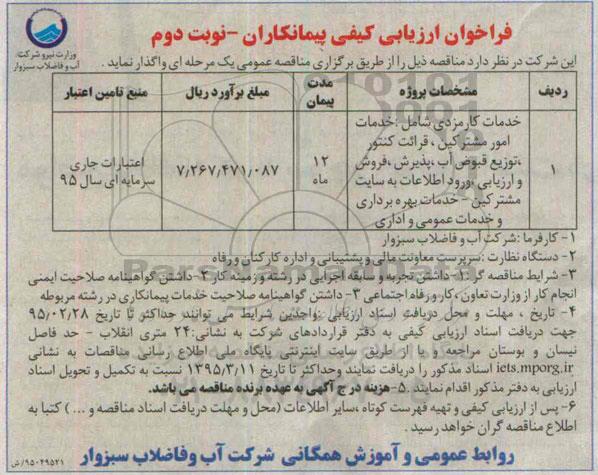 فراخوان ارزیابی کیفی پیمانکاران -نوبت دوم
وزارت نیرو شرکت
آب و فاضلاب سبزوار
این شرکت در نظر دارد مناقصه ذیل را از طریق برگزاری مناقصه عمومی یک مرحله ای واگذار نماید.
ردیف
مشخصات پروژه
مدت پیمان
مبلغ برآورد ریال
منبع تامین اعتبار
۱
خدمات کارمزدی شامل :خدمات
امور مشترکین ، قرائت کنتور
،توزیع قبوض آب ،پذیرش ،فروش
و ارزیابی ،ورود اطلاعات به سایت
مشترکین - خدمات بهره برداری
و خدمات عمومی و اداری
۱۲
ماه
۷٫۲۶۷٫۴۷۱٫۰۸۷
اعتبارات جاری
سرمایه ای سال ۹۵
۱- کارفرما :شرکت آب و فاضلاب سبزوار
۲- دستگاه نظارت :سرپرست معاونت مالی و پشتیبانی و اداره کارکنان و رفاه
۳- شرایط مناقصه گران: ۱- داشتن تجربه و سابقه اجرایی در رشته و زمینه کار ۲- داشتن گواهینامه صلاحیت ایمنی
انجام کار از وزارت تعاون ،کار و رفاه اجتماعی ۳- داشتن گواهینامه صلاحیت خدمات پیمانکاری در رشته مربوطه
۴- تاریخ ، مهلت و محل دریافت اسناد ارزیابی :واجدین شرایط می توانند حداکثر تا تاریخ ۹۵/۰۲/۲۸
جهت دریافت اسناد ارزیابی کیفی به دفتر قراردادهای شرکت به نشانی:۲۴ متری انقلاب - حد فاصل
نیسان و بوستان مراجعه و یا از طریق سایت اینترنتی پایگاه ملی اطلاع رسانی مناقصات به نشانی
iets.mporg.ir اسناد مذکور را دریافت نمایند وحداکثر تا تاریخ ۱۳۹۵/۳/۱۱ نسبت به تکمیل و تحویل اسناد
ارزیابی به دفتر مذکور اقدام نمایند .۵- هزینه درج آگهی به عهده برنده مناقصه می باشد.
۶- پس از ارزیابی کیفی و تهیه فهرست کوتاه ،سایر اطلاعات (محل و مهلت دریافت اسناد مناقصه و ... ) کتبا به
اطلاع مناقصه گران خواهد رسید .
روابط عمومی و آموزش همگانی شرکت آب وفاضلاب سبزوار
۹۵۰۴۹۵۲۱/ش